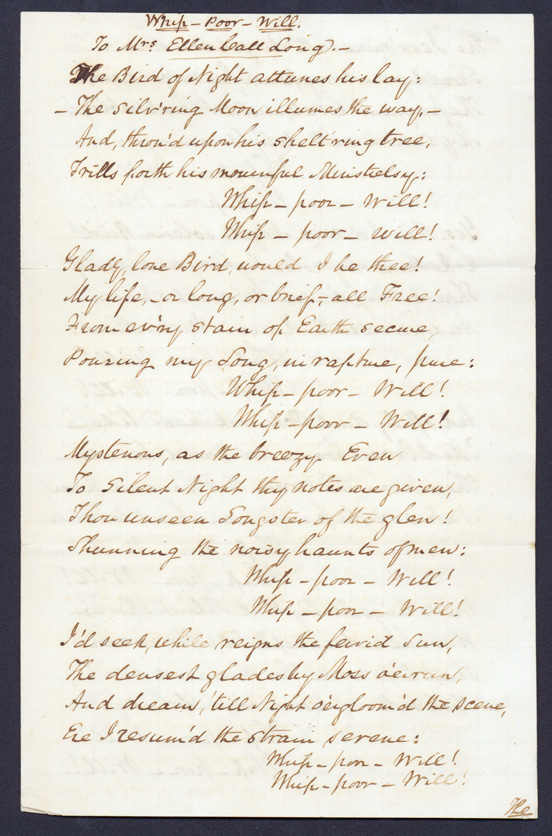 Whip-Poor-Will.
To Mrs Ellen Call Long.-
The Bird of Night attunes his lay:
- The silv'ring Moon illumes the way,-
And, thron'd upon his shelt'ring tree,
Trills forth his mournful Minstrelsy:
Whip-poor-Will!
Whip-poor-will!
Gladly, lone Bird, would I be thee!
My life,-or long, or brief,-all Free!
From ev'ry stain of Earth secure,
Pouring my Song, in rapture, pure:
Whip-poor-Will!
Whip-poor-Will!
Mysterious, as the breezy Even
To Silent Night thy notes are given,
Thou unseen Songster of the glen!
Shunning the noisy haunts of men:
Whip-poor-Will!
Whip-poor-Will!
I'd seek, while reigns the fervid Sun,
The densest glades by Moss o'errun,
And dream, 'till Night o'ergloom'd the scene,
Ere I resum'd the strain serene:
Whip-poor-Will!
Whip-poor-Will!
The